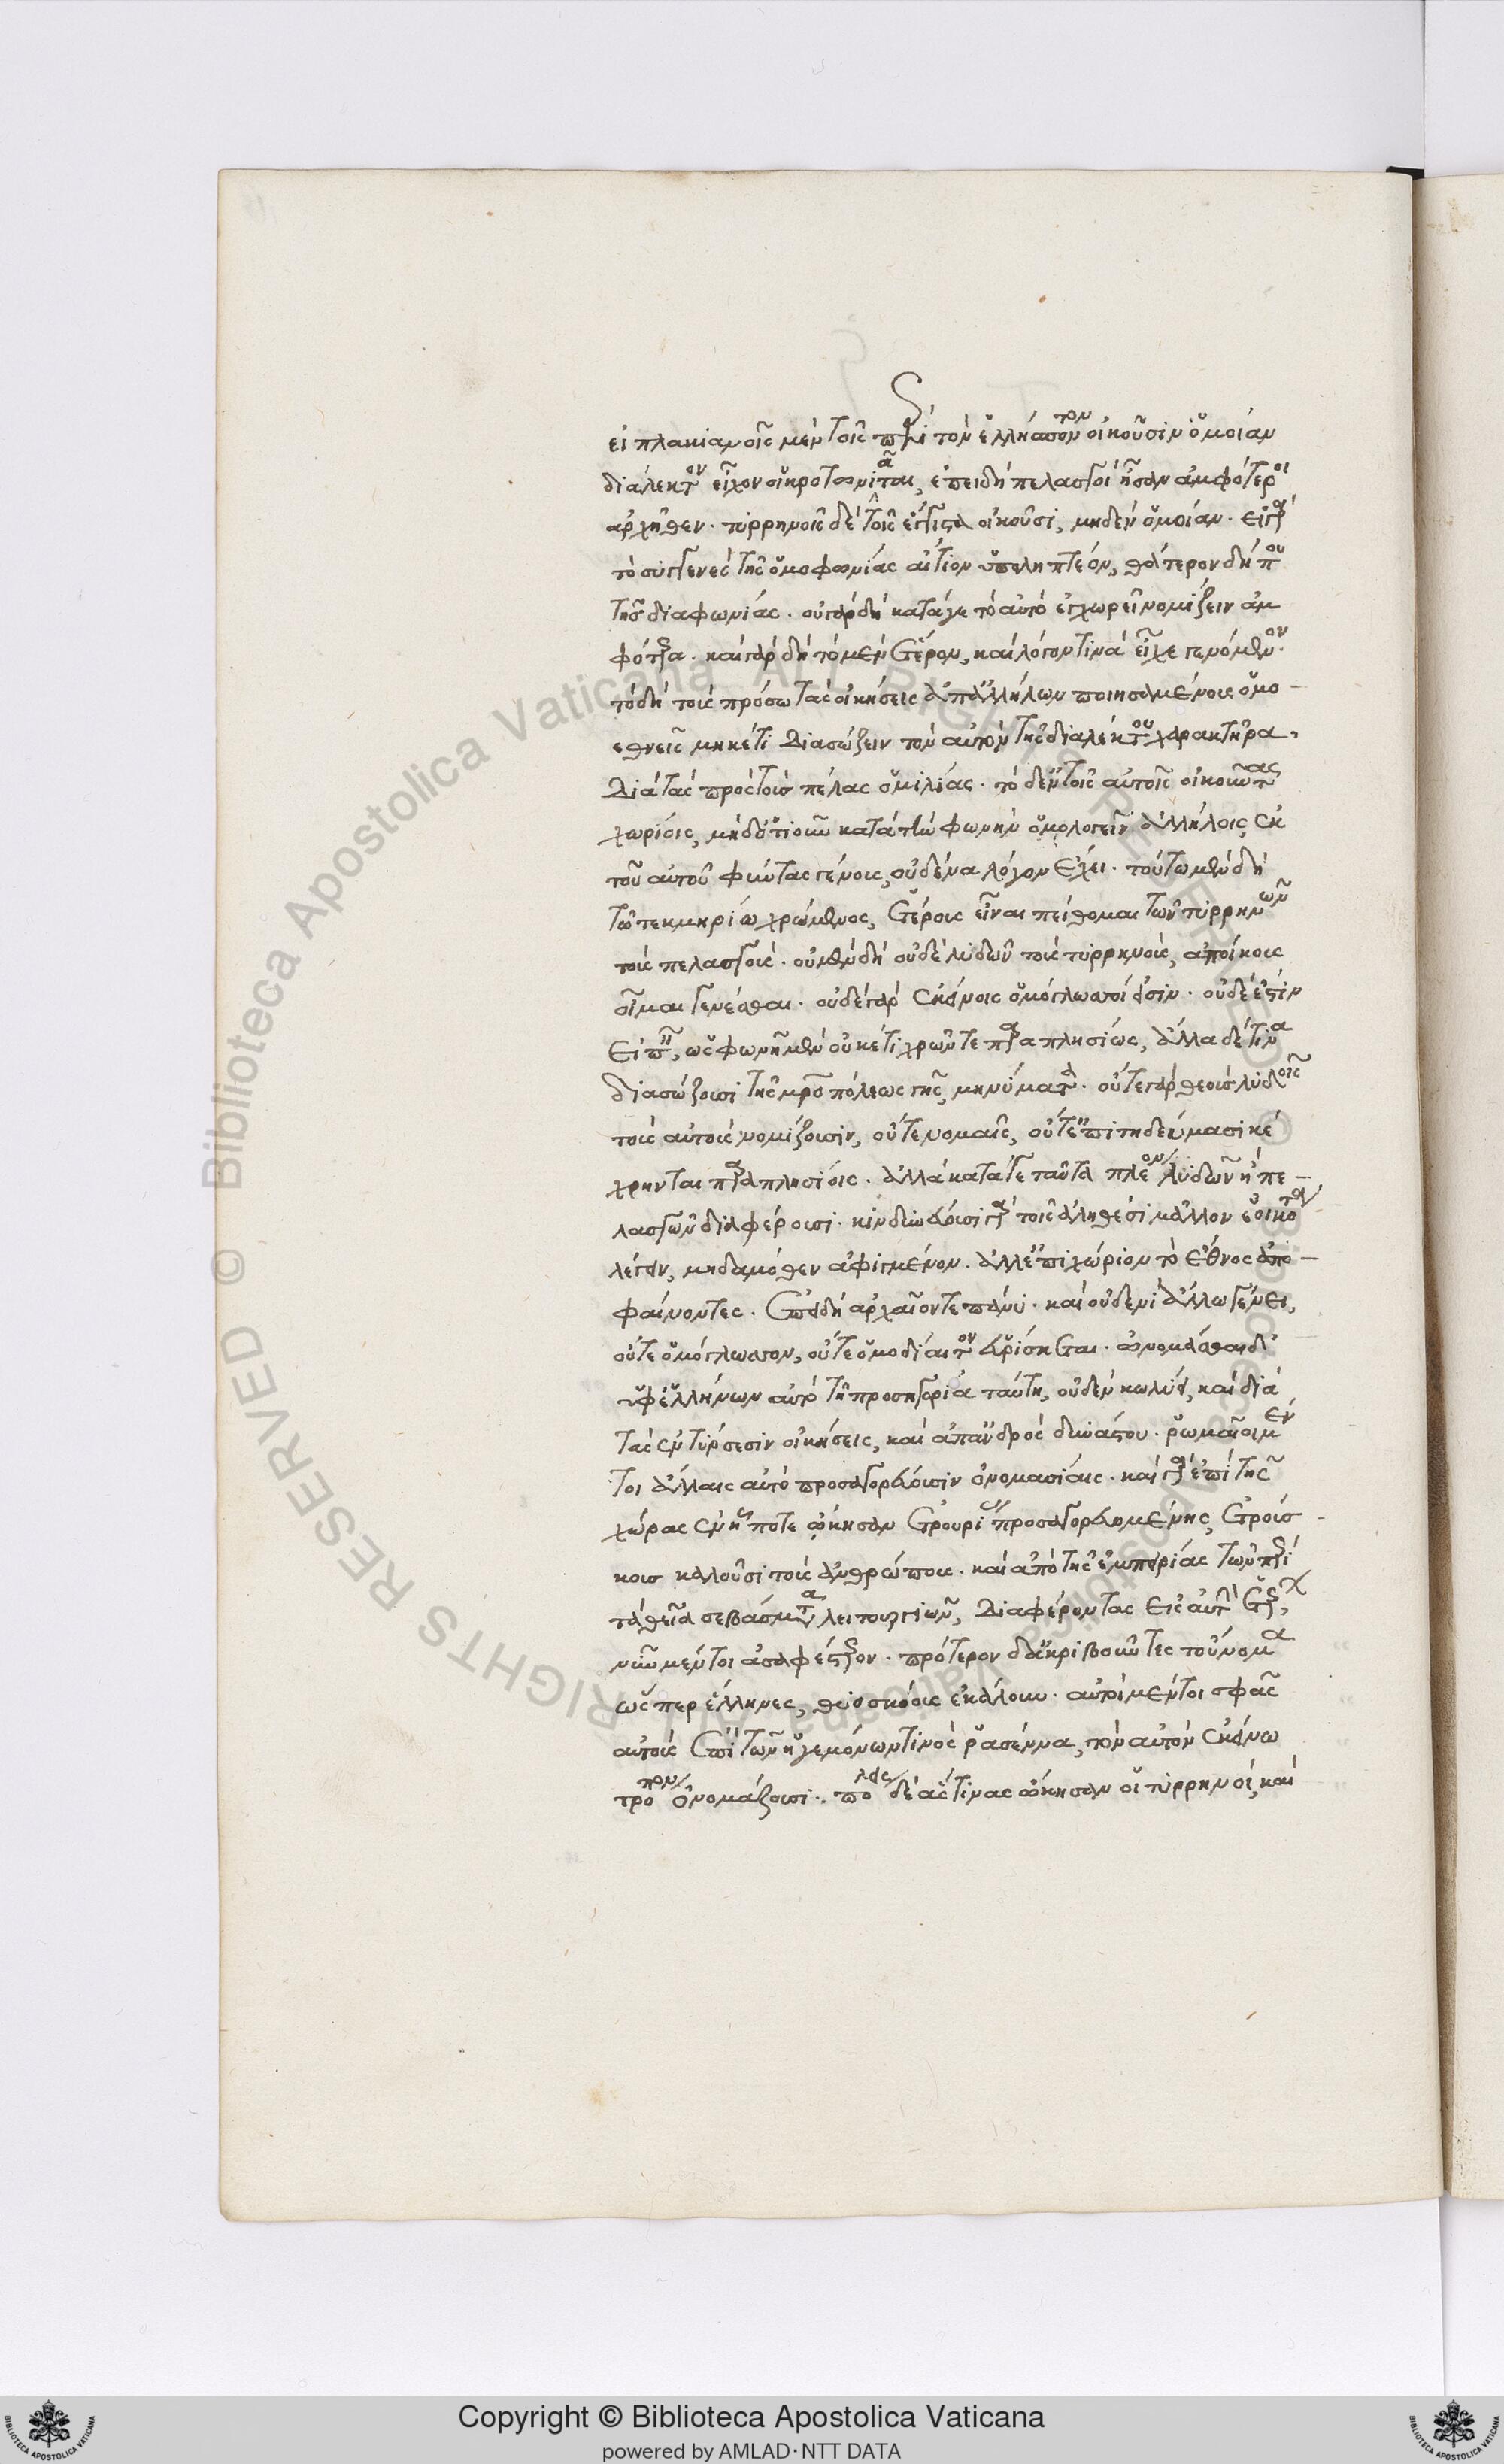 εἰ πλακιανοῖς μὲν τοῖς περὶ τὸν ἑλλήσποντον οἰκοῦσιν ὁμοίαν
διάλεκτον εἶχον οἱ κροτωνιᾶται, ἐπειδὴ πελασγοὶ ἦσαν ἀμφότεροι
ἀρχῆθεν. τυρρηνοῖς δὲ τοῖς ἔγγιστα οἰκοῦσι, μηδὲν ὁμοίαν. εἰ γὰρ
τὸ συγγενὲς τῆς ὁμοφωνίας αἴτιον ὑποληπτέον, θάτερον δή που
τῆς διαφωνίας. οὐ γὰρ δὴ κατά γε τὸ αὐτὸ ἐγχωρεῖ νομίζειν ἀμ
φότερα. καὶ γὰρ δὴ τὸ μὲν ἕτερον, καὶ λόγον τινὰ εἶχε γενόμενον.
τὸ δὴ τοὺς πρόσω τὰς οἰκήσεις ἀπ' ἀλλήλων ποιησαμένους ὁμο-
εθνεῖς μηκέτι διασώζειν τὸν αὐτὸν τῆς διαλέκτου χαρακτῆρα,
διὰ τὰς πρὸς τοὺς πέλας ὁμιλίας. τὸ δ' ἐν τοῖς αὐτοῖς οἰκοῦντας
χωρίοις, μηδ' ὁτιοῦν κατὰ τὴν φωνὴν ὁμολογεῖν ἀλλήλοις ἐκ
τοῦ αὐτοῦ φύντας γένους, οὐδένα λόγον ἔχει. τούτω μὲν δὴ
τῶ τεκμηρίω χρώμενος, ἑτέρους εἶναι πείθομαι τῶν τυρρηνῶν
τοὺς πελασγούς. οὐ μὲν δὴ οὐδὲ λυδῶν τοὺς τυρρηνοὺς, ἀποίκους
οἶμαι γενέσθαι. οὐδὲ γὰρ ἐκείνοις ὁμόγλωσσοί εἰσιν. οὐδὲ ἔστιν
εἰπεῖν, ὡς φωνῆ μὲν οὐκέτι χρῶνται παραπλησίως, ἄλλα δέ τινα
διασώζουσι τῆς μητροπόλεως γῆς, μηνύματα. οὔτε γὰρ θεοὺς λυδοῖς
τοὺς αὐτοὺς νομίζουσιν, οὔτε νομαῖς, οὔτ' ἐπιτηδεύμασι κέ
χρηνται παραπλησίοις. ἀλλὰ κατά γε ταῦτα πλέον λυδῶν ἢ πε-
λασγῶν διαφέρουσι. κινδυνεύουσι γὰρ τοῖς ἀληθέσι μᾶλλον ἐοικότα
λέγειν, μηδαμόθεν ἀφιγμένον. ἀλλ' ἐπιχώριον τὸ ἔθνος ἀπο-
φαίνοντες. ἐπειδὴ ἀρχαῖόν τε πάνυ. καὶ οὐδενὶ ἄλλω γένει,
οὔτε ὁμόγλωσσον, οὔτε ὁμοδίαιτον εὑρίσκεται. ὠνομάσθαι δ'
ὑφ' ἑλλήνων αὐτὸ τῆ προσηγορία ταύτη, οὐδὲν κωλύει, καὶ διὰ
τὰς ἐν τύρσεσιν οἰκήσεις, καὶ ἀπ' ἀνδρὸς δυνάστου. ῥωμαῖοι μέν
τοι ἄλλαις αὐτὸ προσαγορεύουσιν ὀνομασίαις. καὶ γὰρ ἐπὶ τῆς
χώρας ἐν ᾗ ποτε ὤκησαν ἑτρουρίας προσαγορευομένης, ἑτρούσ-
κους καλοῦσι τοὺς ἀνθρώπους. καὶ ἀπὸ τῆς ἐμπειρίας τῶν περὶ
τὰ θεῖα σεβάσματα λειτουργιῶν, διαφέροντας εἰς αὐτὰ ἑτέρων,
νῦν μέντοι ἀσαφέστερον. πρότερον δ' ἀκριβοῦντες τοὔνομα
ὥσπερ ἕλληνες, θυοσκόους ἐκάλουν. αὐτοὶ μέντοι σφᾶς
αὐτοὺς ἐπὶ τῶν ἡγεμόνων τινὸς ῥασέννα, τὸν αὐτὸν ἐκείνω
τρόπον ὀνομάζουσι. πόλεις δὲ ἅς τινας ὤκησαν οἱ τυρρηνοί, καὶ
Copyright © Biblioteca Apostolica Vaticana
powered by AMLAD·NTT DATA